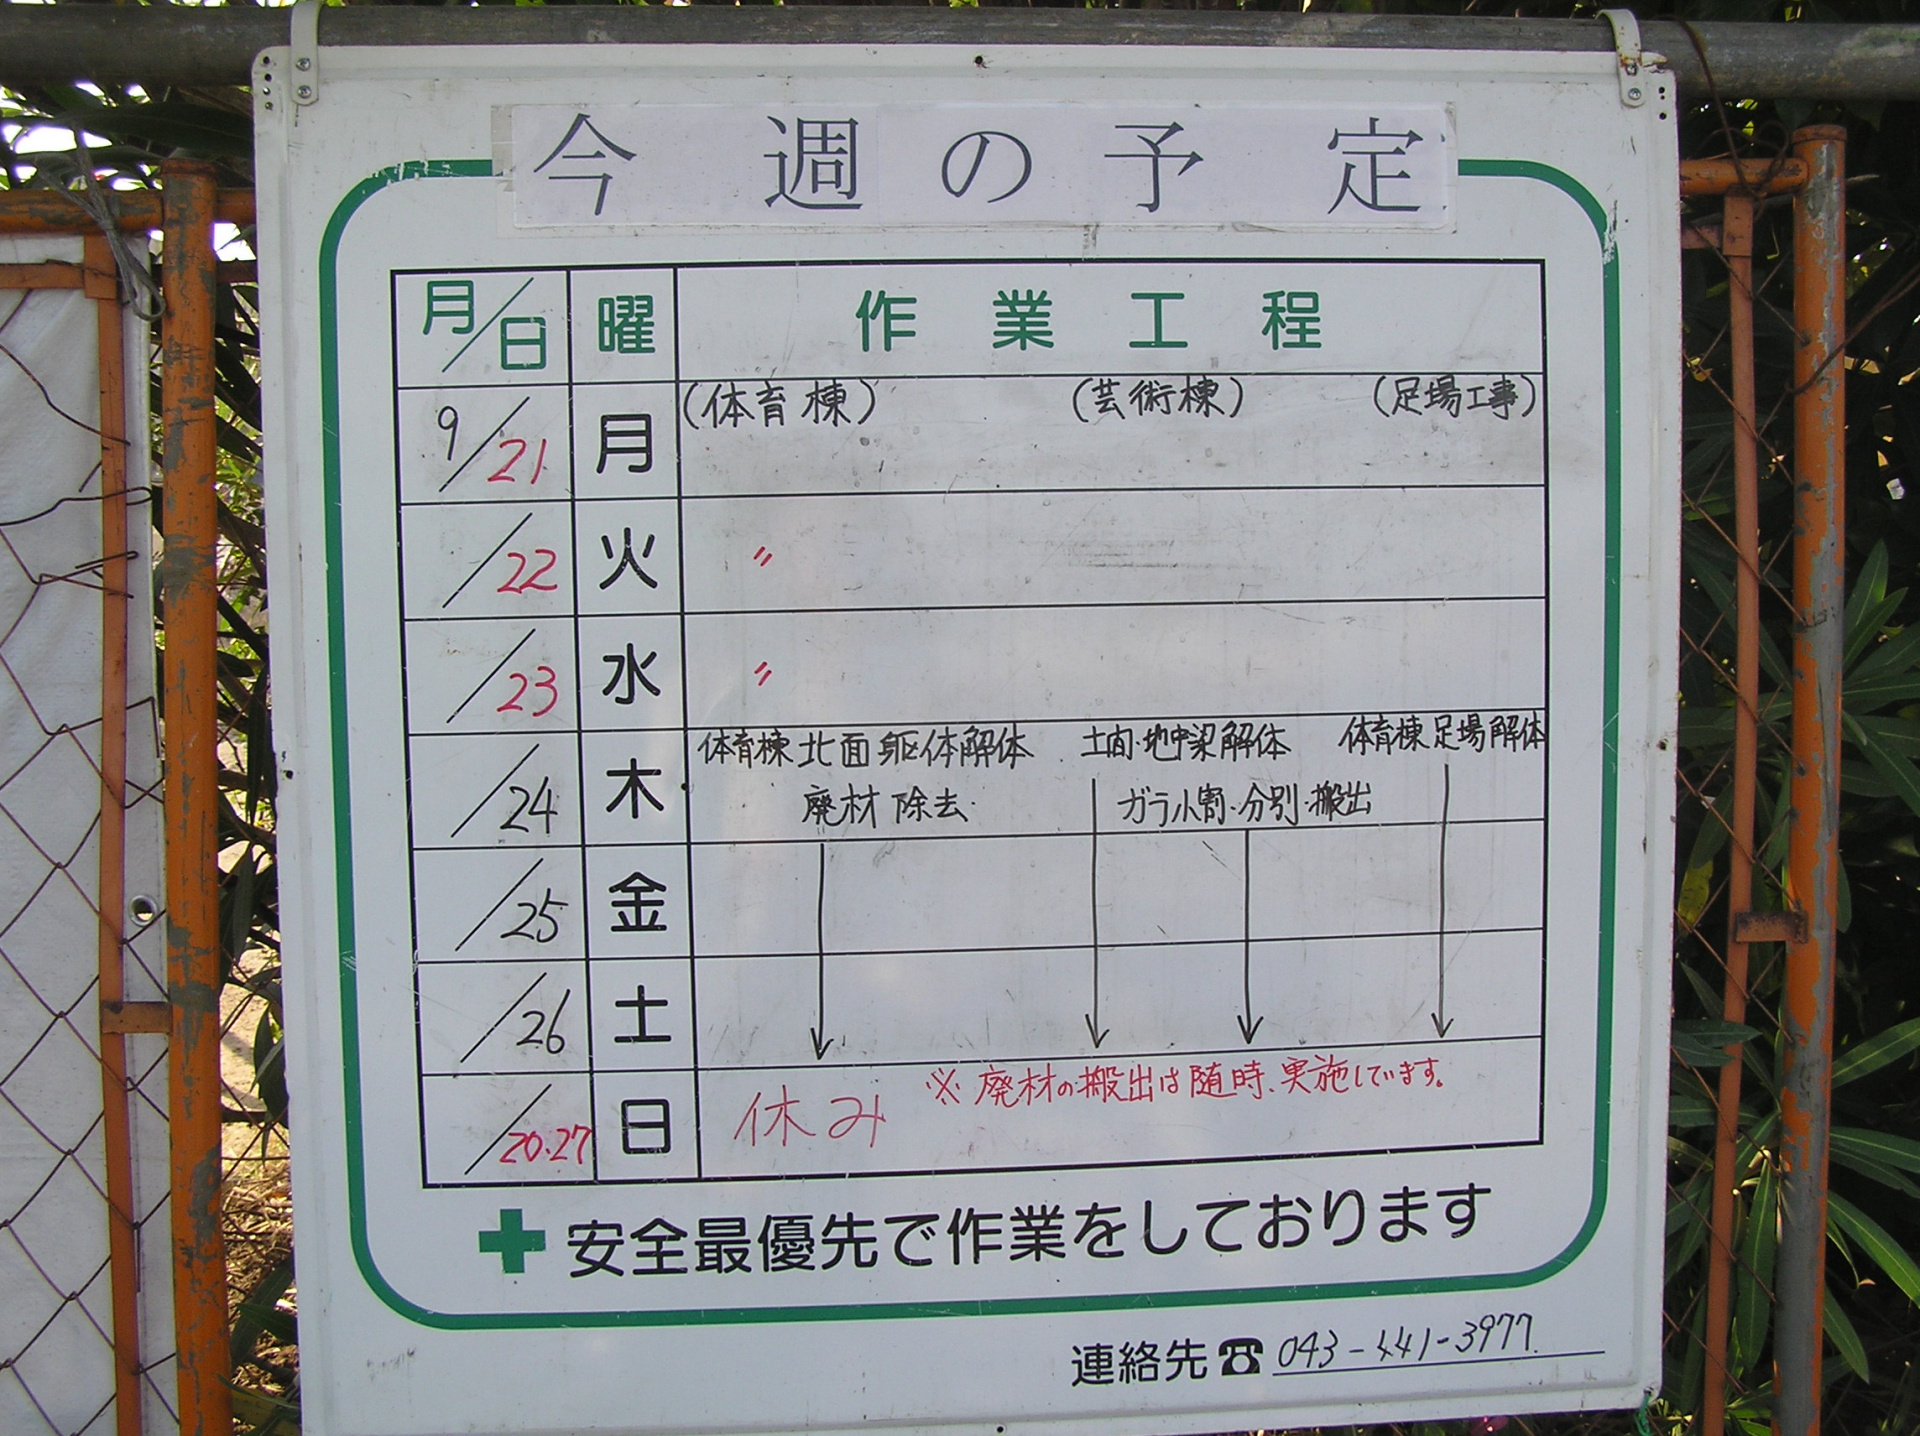 今週の予定
月/日 曜 作業工程
9/21 月 (体育棟) (芸術棟) (足場工事)
/22 火 〃
/23 水 〃
/24 木 体育棟北面躯体解体 土間・地中梁解体 体育棟足場解体
廃材除去 ガラ小割・分別・搬出
/25 金
/26 土
/20.27 日 休み ※廃材の搬出は随時、実施しています。
安全最優先で作業をしております
連絡先☎043-441-3977